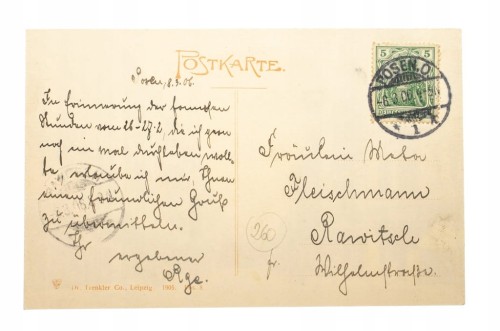 POSTKARTE.
Posen, 8.3.06.
In Erinnerung der
Stunden vom 26-27.2, die ich gern
noch ein mal durchleben woll-
te erlaube ich mir, Ihnen
einen freundlichen Gruß
zu übermitteln.
Ihr
ergebener
5 5
POSEN. O
1
Fräulein Meta
Fleischmann
Rawitsch
Wilhelmstraße.
260
Trenkler Co., Leipzig. 1905.